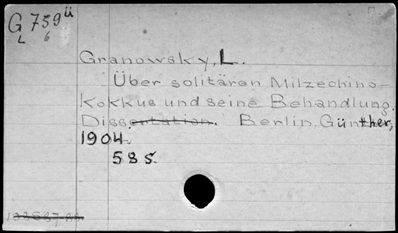 G 759ü
L 6
Granowsky, L.
Über solitären Milzechino-
kokkus und seine Behandlung.
Dissertation. Berlin, Günther,
1904.
58 S.